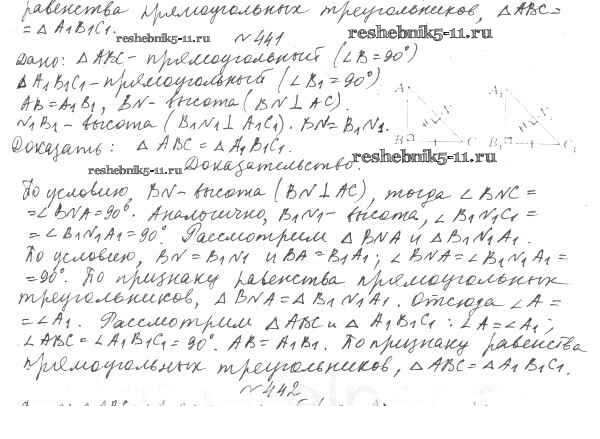 равенства прямоугольных треугольников, △ABC=
=△A₁B₁C₁.
reshebnik5-11.ru
reshebnik5-11.ru
№441
Дано: △ABC- прямоугольный (∠B=90°)
△A₁B₁C₁- прямоугольный (∠B₁=90°)
AB=A₁B₁, BN- высота (BN⊥AC).
N₁B₁- высота (B₁N₁⊥A₁C₁). BN=B₁N₁.
A
B
C
N
A₁
B₁
C₁
Доказать: △ABC=△A₁B₁C₁.
Доказательство.
reshebnik5-11.ru
reshebnik5-11.ru
По условию, BN- высота (BN⊥AC), тогда ∠BNC=
=∠BNA=90°. Аналогично, B₁N₁- высота, ∠B₁N₁C₁=
=∠B₁N₁A₁=90°. Рассмотрим △BNA и △B₁N₁A₁.
По условию, BN=B₁N₁ и BA=B₁A₁; ∠BNA=∠B₁N₁A₁=
=90°. По признаку равенства прямоугольных
треугольников, △BNA=△B₁N₁A₁. Отсюда ∠A=
=∠A₁. Рассмотрим △ABC и △A₁B₁C₁: ∠A=∠A₁;
∠ABC=∠A₁B₁C₁=90°. AB=A₁B₁. По признаку равенства
прямоугольных треугольников, △ABC=△A₁B₁C₁.
№442